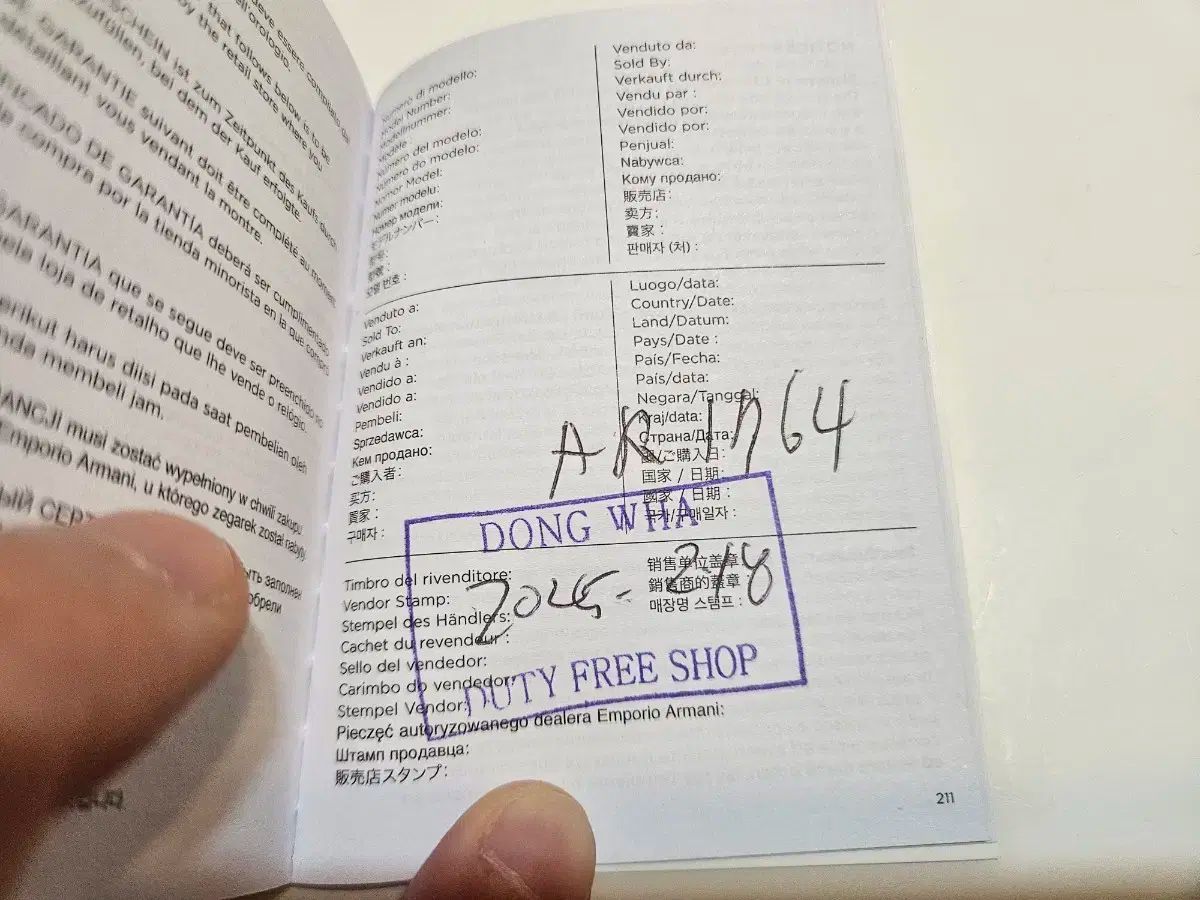 deve essere completato da
ell'orologio.
that follows below is to be
by the retail store where you
SCHEIN ist zum Zeitpunkt des Kaufs durch
zufüllen, bei dem der Kauf erfolgte.
GARANTIE suivant doit être complété au moment
détaillant vous vendant la montre.
DE GARANTÍA deberá ser cumplimentado
de compra por la tienda minorista en la que compró
GARANTIA que se segue deve ser preenchido no
pela loja de retalho que lhe vende o relógio.
berikut harus diisi pada saat pembelian oleh
membeli jam.
musi zostać wypełniony w chwili zakupu
Emporio Armani, u którego zegarek został nabyty
Numero di modello:
Model Number:
Modellnummer:
Modèle
Número del modelo:
Número do modelo:
Nomor Model:
Numer modelu:
Номер модели:
モデルナンバー:
모델 번호 :
Venduto da:
Sold By:
Verkauft durch:
Vendu par :
Vendido por:
Vendido por:
Penjual:
Nabywca:
Кому продано:
販売店:
卖方:
賣家 :
판매자 (처) :
Venduto a:
Sold To:
Verkauft an:
Vendu à :
Vendido a:
Vendido a:
Pembeli:
Sprzedawca:
Кем продано:
ご購入者:
买方:
買家 :
구매자 :
Luogo/data:
Country/Date:
Land/Datum:
Pays/Date :
País/Fecha:
País/data:
Negara/Tanggal:
Kraj/data:
Страна/Дата:
国/ご購入日:
国家 / 日期:
國家 / 日期 :
국가/구매일자 :
AR 1764
DONG WHA
DUTY FREE SHOP
Timbro del rivenditore:
Vendor Stamp:
Stempel des Händlers:
Cachet du revendeur :
Sello del vendedor:
Carimbo do vendedor:
Stempel Vendor:
Pieczęć autoryzowanego dealera Emporio Armani:
Штамп продавца:
販売店スタンプ:
销售单位盖章:
銷售商的蓋章
매장명 스탬프 :
211